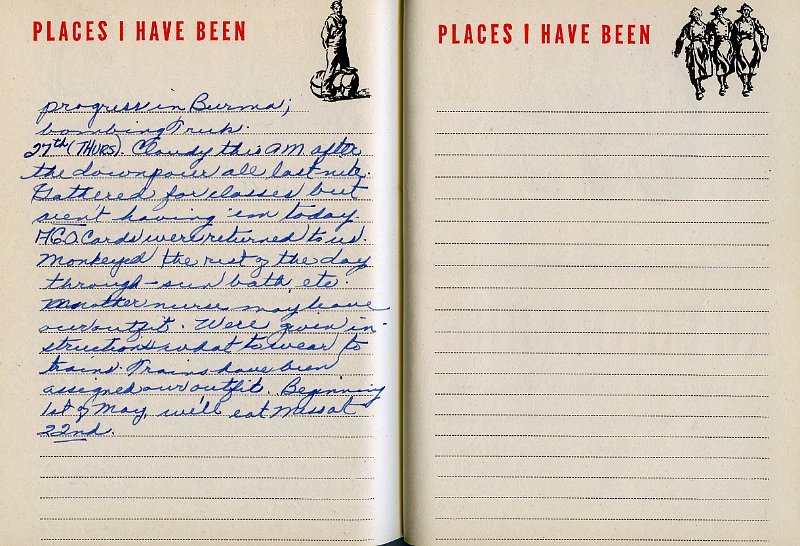 PLACES I HAVE BEEN
progress in Burma;
bombing Truk.
27th (THURS). Cloudy this AM after
the downpour all last nite.
Gathered for classes but
weren't having 'em today.
AGO Cards were returned to us.
Monkeyed the rest of the day
through - sun bath, etc.
Another nurse may leave
our outfit. Were given in-
structions what to wear to
trains. Trains have been
assigned our outfit. Beginning
1st of May, we'll eat Mess at
22nd.
PLACES I HAVE BEEN